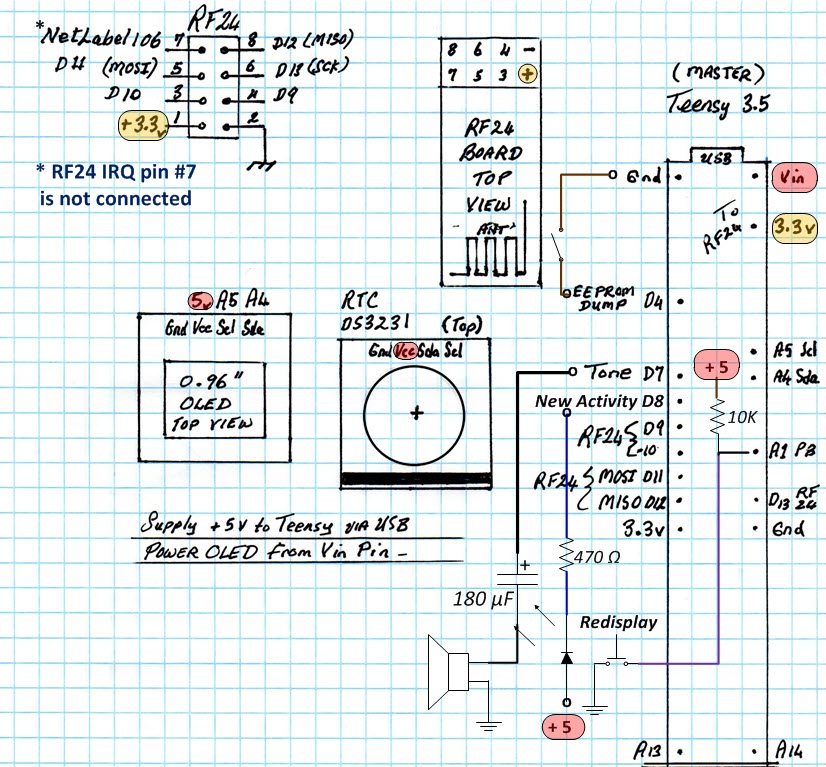 RF24
*NetLabel106 7 8 D12 (MISO)
D11 (MOSI) 5 6 D13 (SCK)
D10 3 4 D9
+3.3v 1 2
* RF24 IRQ pin #7
is not connected
8 6 4 -
7 5 3 +
RF24
BOARD
TOP
VIEW
"ANT"
(MASTER)
Teensy 3.5
USB
Gnd
Vin
To
RF24
3.3v
EEPROM
DUMP D4
5v A5 A4
Gnd Vcc Scl Sda
0.96"
OLED
TOP VIEW
RTC
DS3231 (Top)
Gnd Vcc Sda Scl
+
A5 Scl
A4 Sda
+5
10K
Tone D7
New Activity D8
RF24 { D9
-10
RF24 { MOSI D11
MISO D12
3.3v
A1 PB
D13 RF
24
Gnd
Supply +5V to Teensy VIA USB
POWER OLED From Vin Pin -
+
180 µF
470 Ω
Redisplay
+5
A13
A14